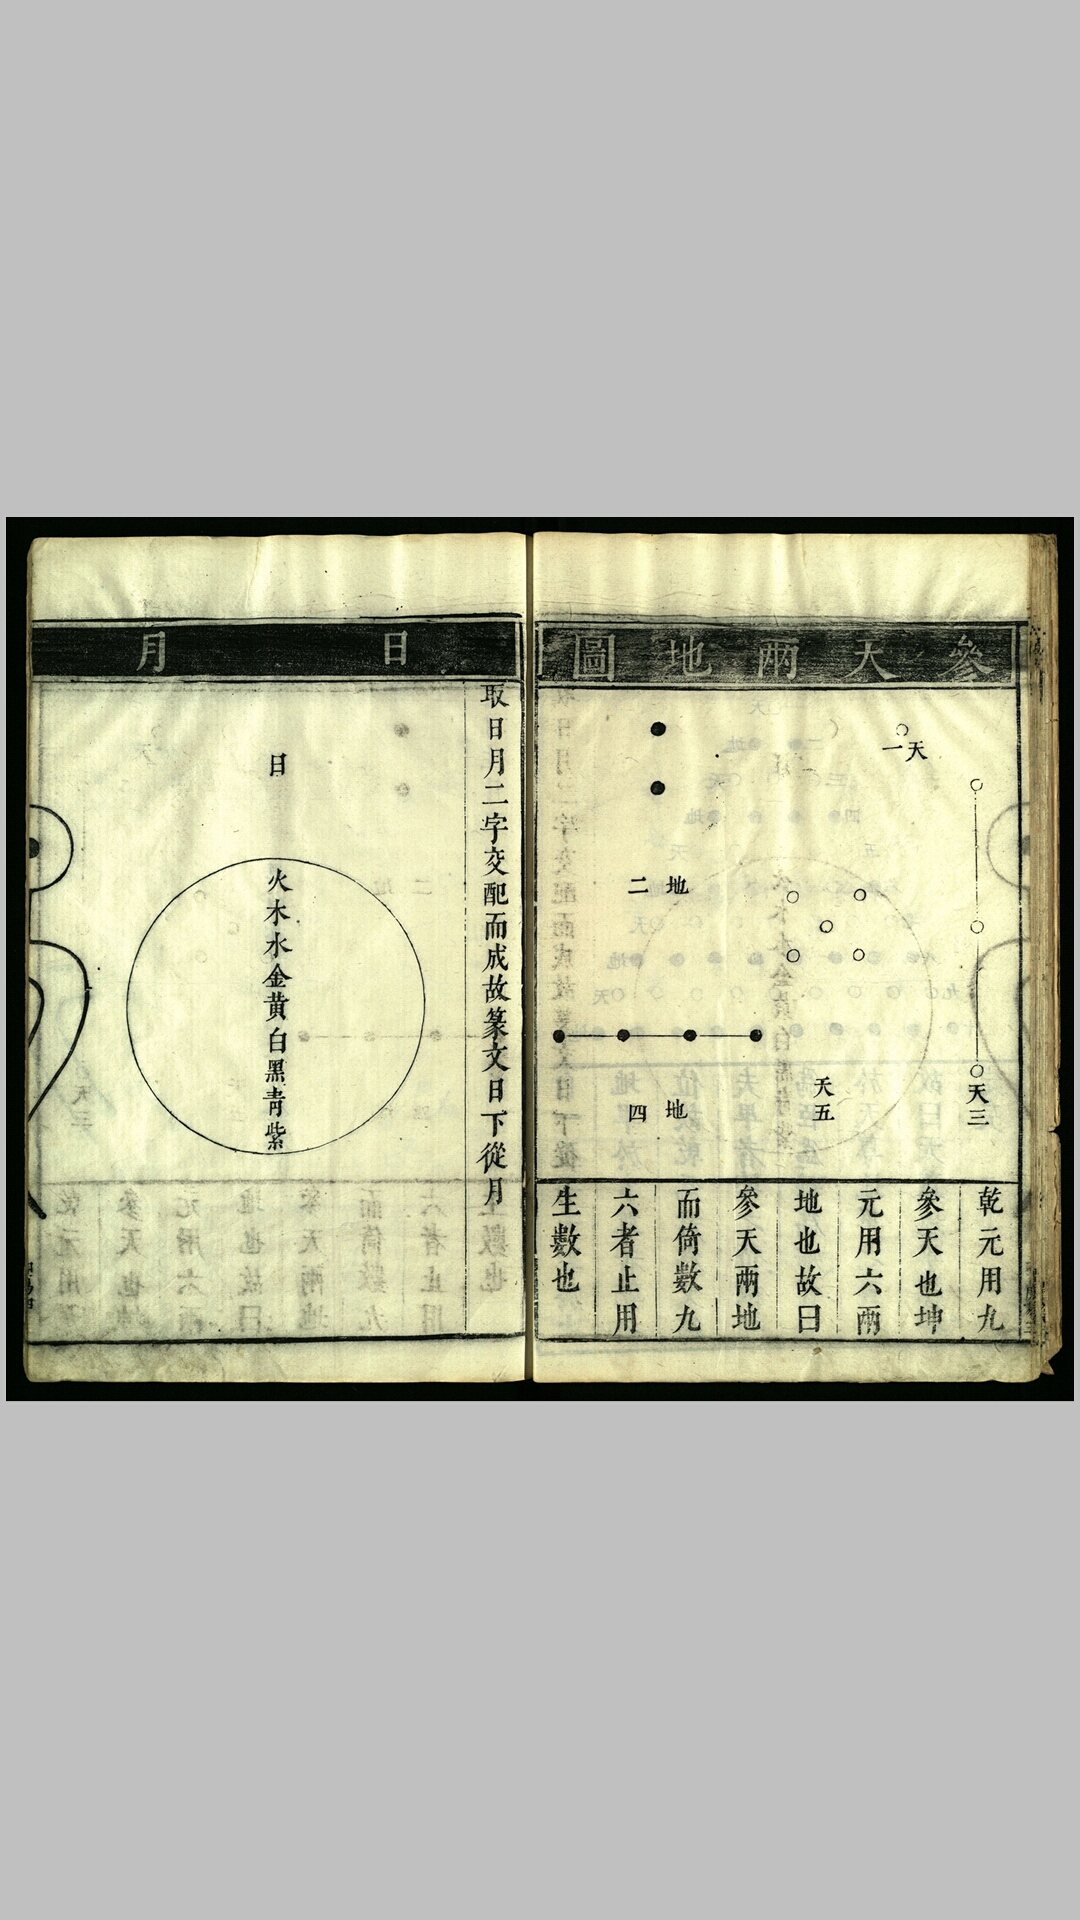 參天兩地圖
天一
天三
地二
天五
地四
乾元用九
參天也坤
元用六兩
地也故曰
參天兩地
而倚數九
六者止用
生數也
日月
取日月二字交配而成故篆文日下從月
日
火木水金黃白黑青紫